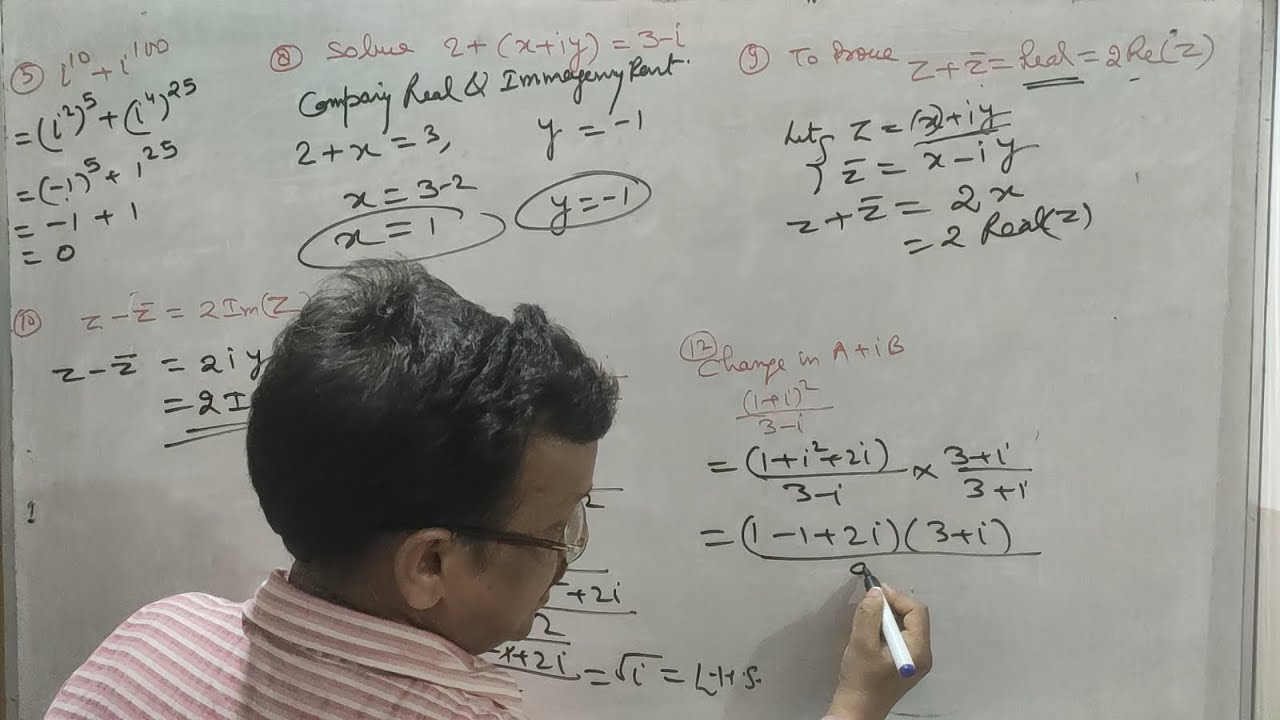 ⑤ i¹⁰ + i¹⁰⁰
= (i²)⁵ + (i⁴)²⁵
= (-1)⁵ + 1²⁵
= -1 + 1
= 0
⑧ Solve 2 + (x + iy) = 3 - i
Real & Immagenry Part.
2 + x = 3, y = -1
x = 3 - 2
x = 1 y = -1
⑨ To Prove z + z̄ = Real = 2Re(z)
Let z = (x) + iy
z̄ = x - iy
z + z̄ = 2x
= 2 Real(z)
⑩ z - z̄ = 2Im(z)
z - z̄ = 2iy
= 2I
+2i
2
-x+2i = √i = L.H.S.
⑫ Change in A + iB
(1+i)²/3-i
= (1 + i² + 2i)/3-i × 3+i/3+i
= (1 - 1 + 2i)(3 + i)